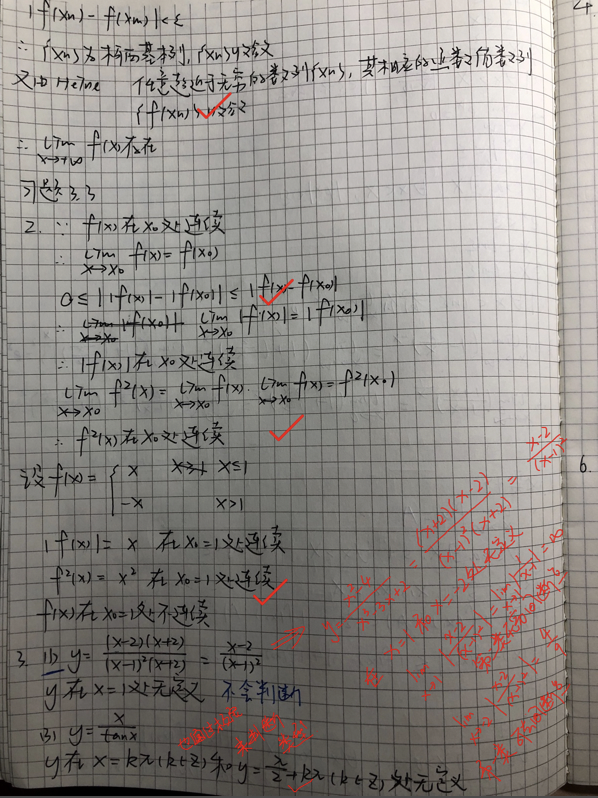 |f(xn) - f(xm)| < ε
∴ {f(xn)}为柯西基本列, {f(xn)}收敛
又由 Heine 任意趋近于无穷的数列{xn}, 其相应的函数值数列
{f(xn)}收敛
∴ lim x→+∞ f(x)存在
习题3.3
2. ∵ f(x)在x₀处连续
∴ lim x→x₀ f(x) = f(x₀)
0 ≤ ||f(x)| - |f(x₀)|| ≤ |f(x) - f(x₀)|
∴ lim x→x₀ |f(x)| = |f(x₀)|
∴ |f(x)|在x₀处连续
lim x→x₀ f²(x) = lim x→x₀ f(x) · lim x→x₀ f(x) = f²(x₀)
∴ f²(x)在x₀处连续
设f(x) = { x x≤1
-x x>1
|f(x)| = x 在x₀=1处连续
f²(x) = x² 在x₀=1处连续
f(x)在x₀=1处不连续
3. (1) y = (x-2)(x+2)/(x-1)²(x+2) = x-2/(x-1)²
y在x=1处无定义 不会判断
(3) y = x/tanx
y在x=kπ(k∈Z)和y=π/2+kπ(k∈Z)处无定义
= (x+2)(x-2)/(x-1)²(x+2) = x-2/(x-1)²
在x=1和x=-2处无定义
4
6.